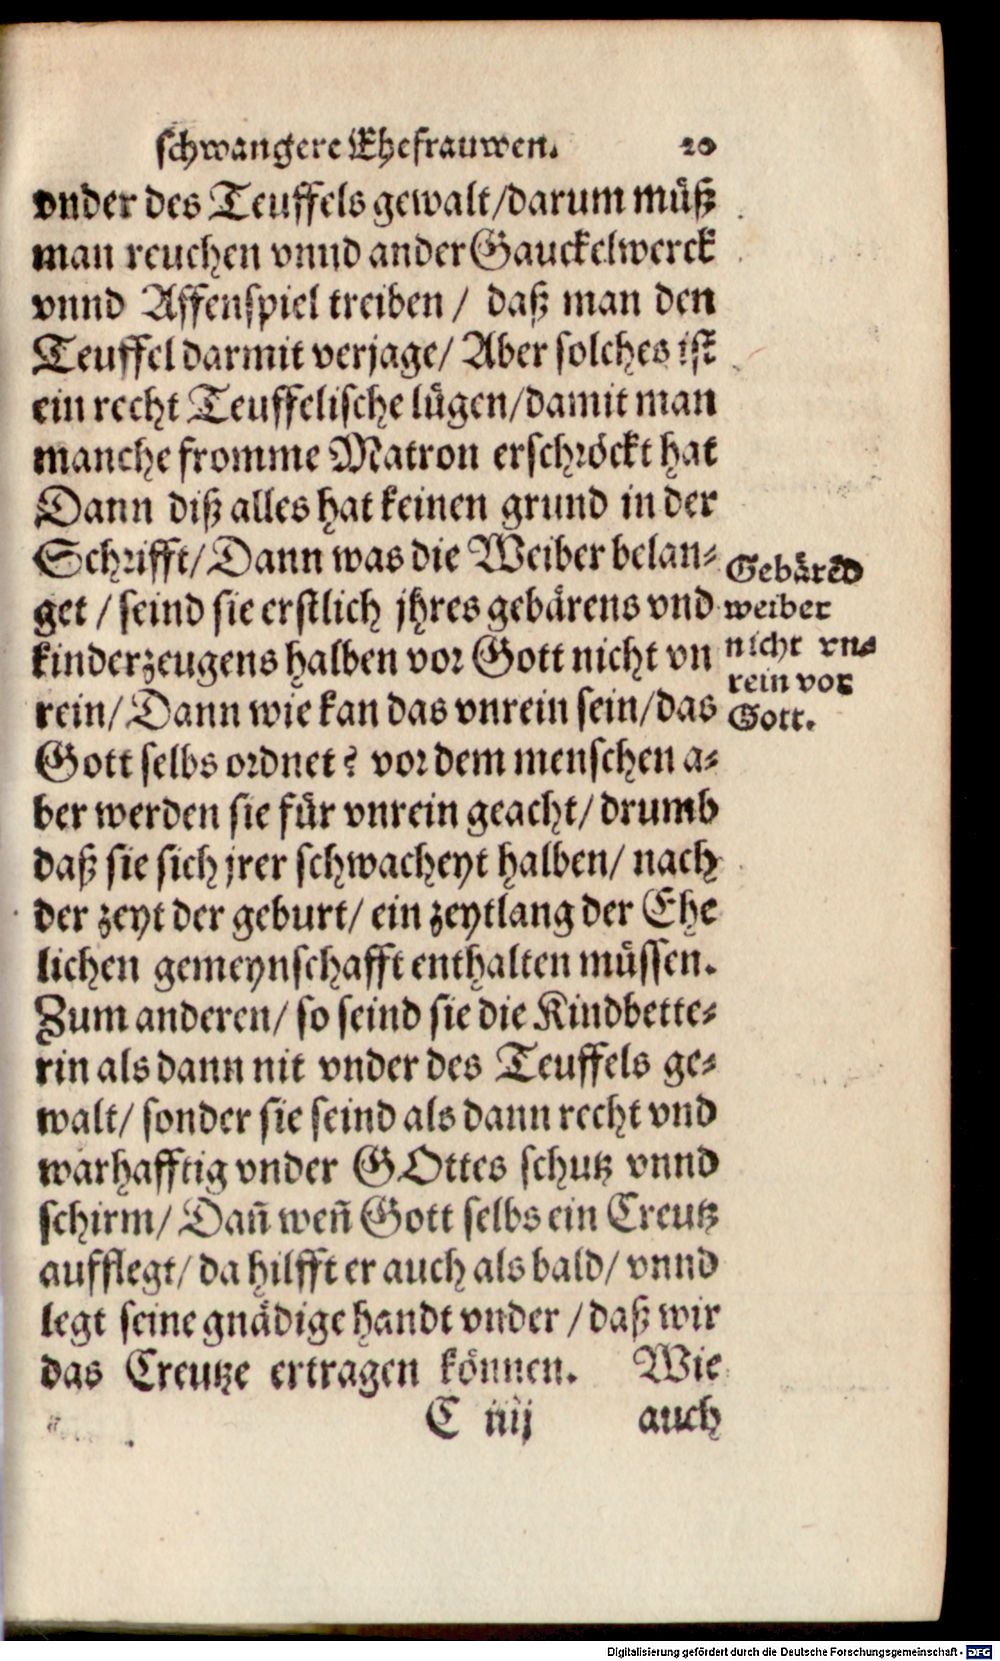 schwangere Ehefrauwen. 20
vnder des Teuffels gewalt/darum müß
man reuchen vnnd ander Gauckelwerck
vnnd Affenspiel treiben / daß man den
Teuffel darmit verjage/ Aber solches ist
ein recht Teuffelische lügen/damit man
manche fromme Matron erschröckt hat
Dann diß alles hat keinen grund in der
Schrifft/ Dann was die Weiber belan⸗
get / seind sie erstlich jhres gebärens vnd
kinderzeugens halben vor Gott nicht vn
rein/ Dann wie kan das vnrein sein/das
Gott selbs ordnet? vor dem menschen a⸗
ber werden sie für vnrein geacht/ drumb
daß sie sich jrer schwacheyt halben/ nach
der zeyt der geburt/ ein zeytlang der Ehe
lichen gemeynschafft enthalten müssen.
Zum anderen/ so seind sie die Kindbette⸗
rin als dann nit vnder des Teuffels ge⸗
walt/ sonder sie seind als dann recht vnd
warhafftig vnder GOttes schutz vnnd
schirm/ Dañ weñ Gott selbs ein Creutz
aufflegt/ da hilfft er auch als bald/ vnnd
legt seine gnädige handt vnder / daß wir
das Creutze ertragen können. Wie
C iiij auch
Gebärẽd
weiber
nicht vn⸗
rein vor
Gott.
Digitalisierung gefördert durch die Deutsche Forschungsgemeinschaft - DFG